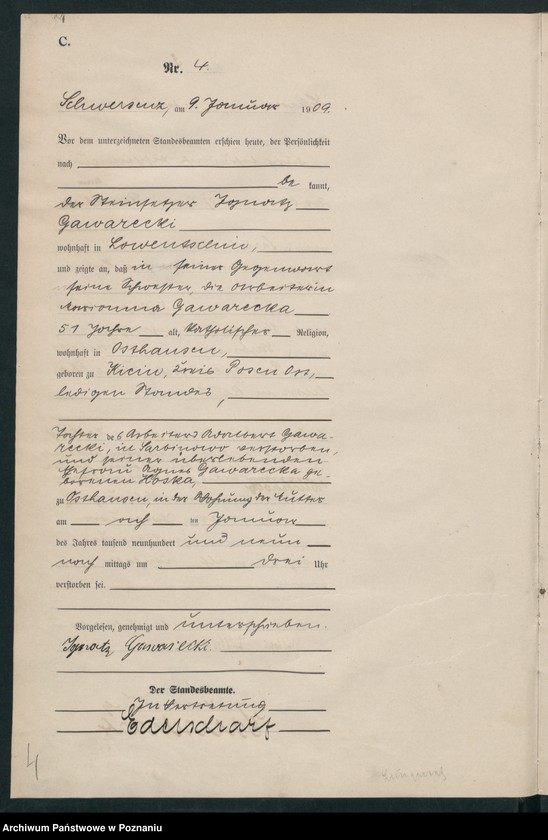 C.
Nr. 4.
Schwersenz, am 9. Januar 1909.
Vor dem unterzeichneten Standesbeamten erschien heute, der Persönlichkeit
nach
be kannt,
der Steinsetzer Ignatz
Gawarecki
wohnhaft in Lowentschin,
und zeigte an, daß in seiner Gegenwart
seine Schwester, die Arbeiterin
Marianna Gawarecka
51 Jahre alt, katholischer Religion,
wohnhaft in Osthausen,
geboren zu Kicin, Kreis Posen Ost,
ledigen Standes,
Tochter des Arbeiters Adalbert Gawa-
recki, in Sarbinowo verstorben,
und seiner überlebenden
Ehefrau Agnes Gawarecka ge-
borenen
zu Osthausen, in der Wohnung der Mutter
am acht ten Januar
des Jahres tausend neunhundert und neun
nach mittags um drei Uhr
verstorben sei.
Vorgelesen, genehmigt und unterschrieben.
Ignatz Gawarecki
Der Standesbeamte.
In Vertretung
4
Archiwum Państwowe w Poznaniu